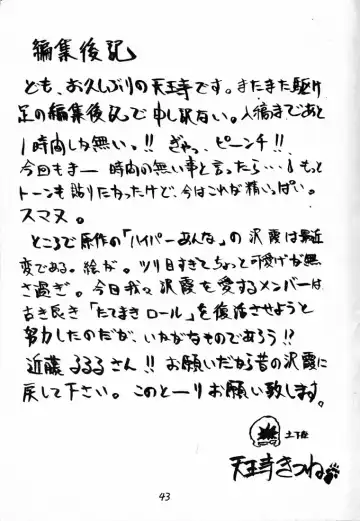 編集後記
ども、お久しぶりの天王寺です。またまた駆け
足の編集後記で申し訳ない。入稿まであと
1時間しか無いっ!! ぎゃっ、ピーンチ!!
今回もまー時間の無い事と言ったら…。もっと
トーンも貼りたかったけど、今はこれが精いっぱい。
スマヌ。
ところで原作の「ハイパーあんな」の沢霞は最近
変である。絵が。ツリ目すぎてちょっと可愛げが無
さ過ぎ。今日我々沢霞を愛するメンバーは
古き良き「たてまきロール」を復活させようと
努力したのだが、いかがなものであろう!?
近藤るるるさん!! お願いだから昔の沢霞に
戻して下さい。このとーりお願い致します。
土下座
天王寺きつね
43